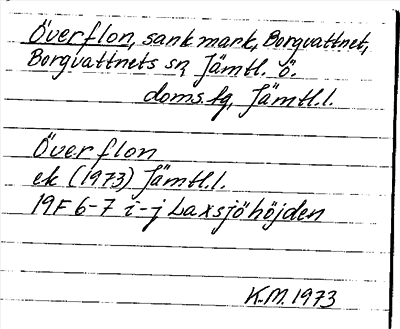 Överflon, sank mark, Borgvattnet,
Borgvattnets sn, Jämtl. ö.
doms.tg, Jämtl.l.
Överflon
ek (1973) Jämtl.l.
19F 6-7 i-j Laxsjöhöjden
K.M. 1973